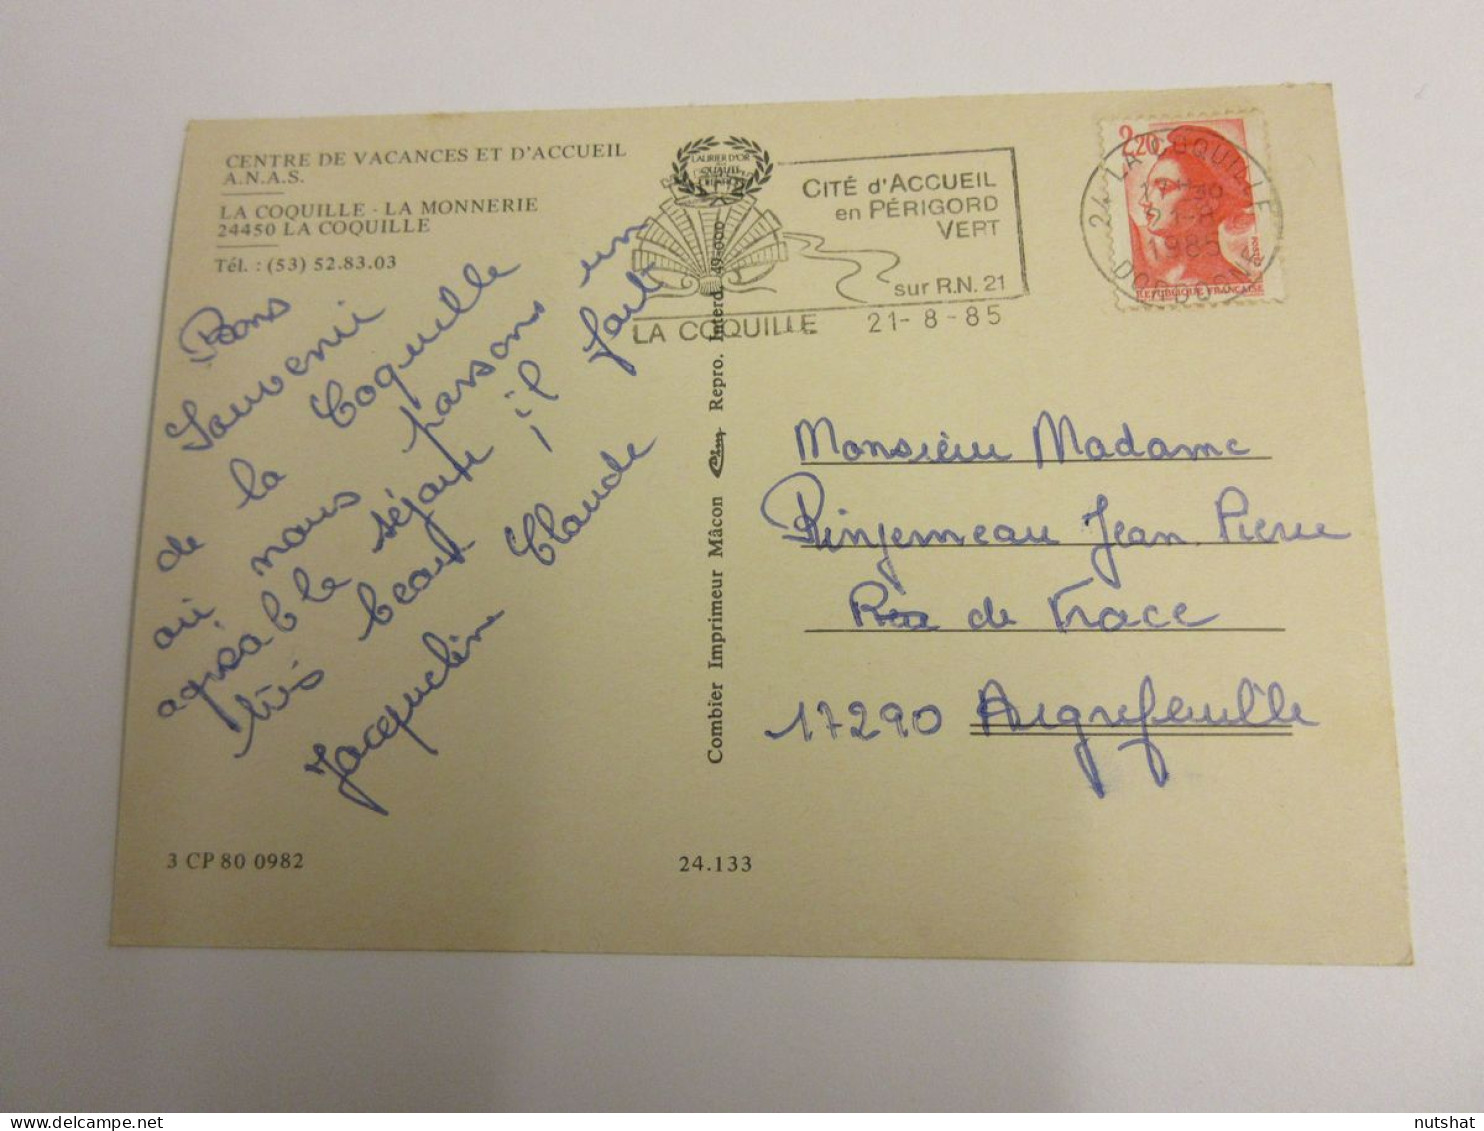 CENTRE DE VACANCES ET D'ACCUEIL
A.N.A.S.
LA COQUILLE - LA MONNERIE
24450 LA COQUILLE
Tél. : (53) 52.83.03
LAURIER D'OR
QUALITÉ
CITÉ d'ACCUEIL
en PÉRIGORD
VERT
sur R.N. 21
LA COQUILLE 21-8-85
2,20
24 LA COQUILLE
1985
DORDOGNE
REPUBLIQUE FRANÇAISE
Bons
Souvenir
de la Coquille
où nous passons un
agréable séjour il fait
très beau
Jacqueline Claude
Combier Imprimeur Mâcon Repro. Interd. 49-000
Monsieur Madame
Jean Pierre
de Trace
17290 Aigrefeuille
3 CP 80 0982
24.133
nutshat